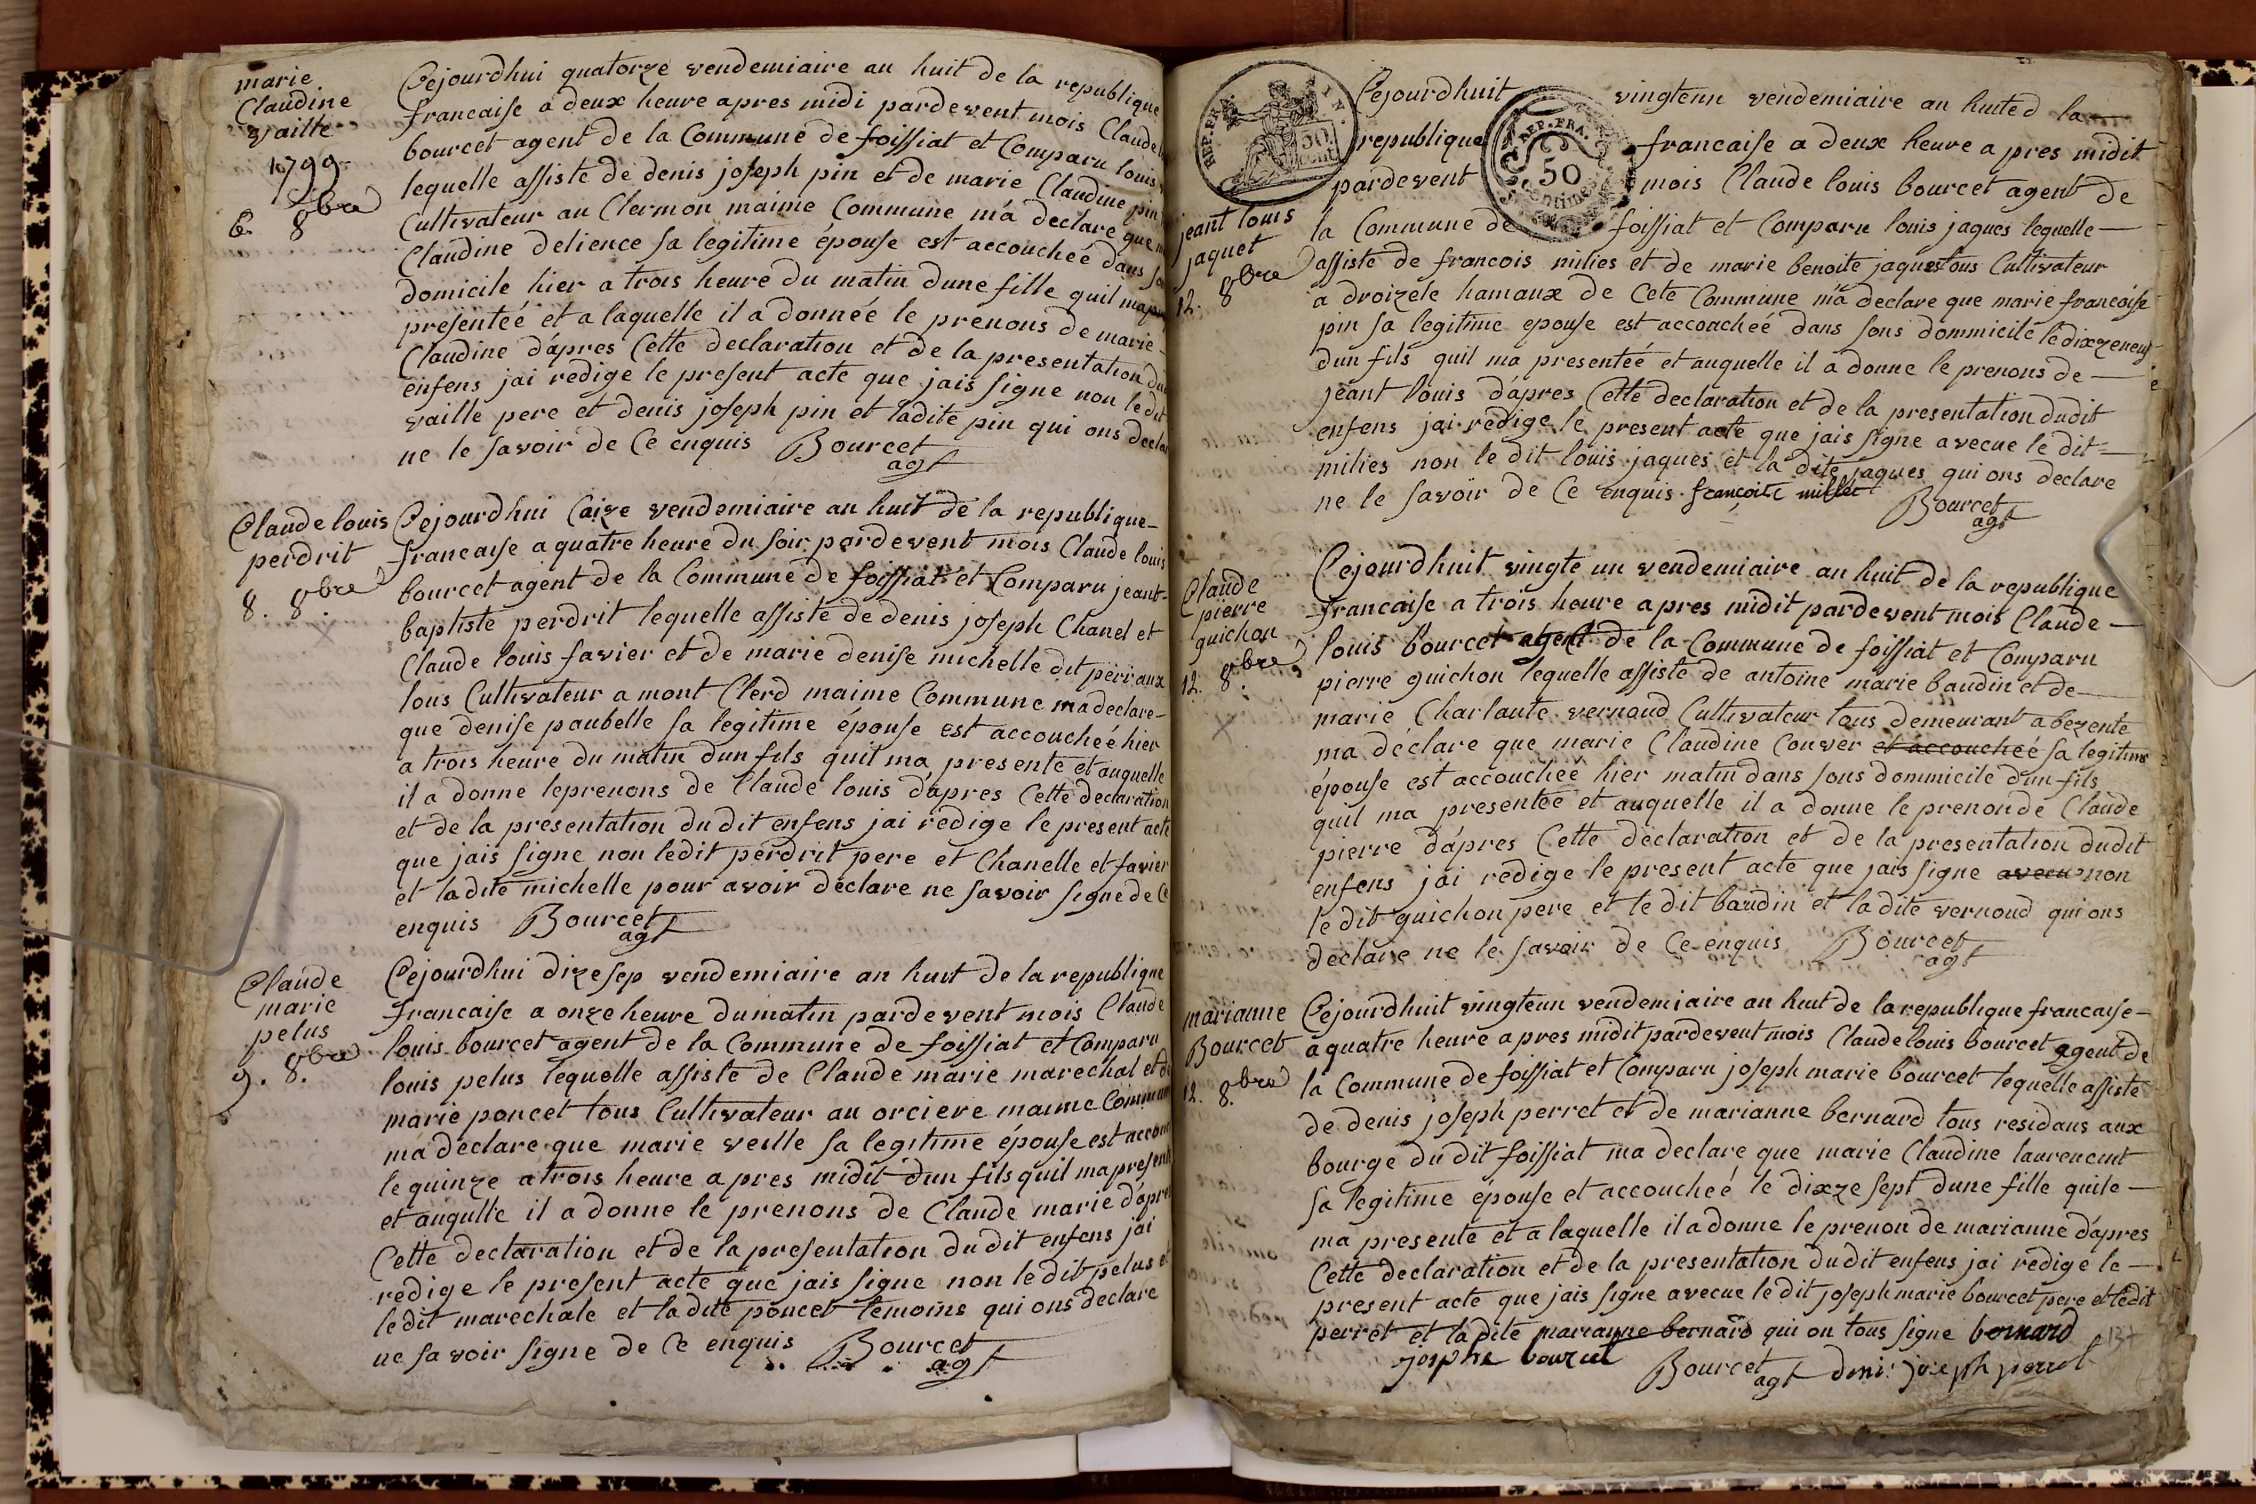 marie
Claudine
vaille
1799
6. 8bre
Cejourdhui quatorze vendemiaire an huit de la republique
francaise a deux heure apres midi pardevent mois Claude
bourcet agent de la Commune de foissiat et Comparu louis
lequelle assiste de denis joseph pin et de marie Claudine pin
Cultivateur au Clermon maime Commune ma declare que
Claudine delience sa legitime épouse est accoucheé dans
domicile hier a trois heure du matin dune fille quil
presenteé et a laquelle il a donneé le prenons de marie
Claudine dapres Cette declaration et de la presentation
enfens jai redige le present acte que jais signe non le dit
vaille pere et denis joseph pin et ladite pin qui ons
ne le savoir de Ce enquis Bourcet
agt
Claude louis
perdrit
8. 8bre
Cejourdhui Caize vendemiaire an huit de la republique
francaise a quatre heure du soir pardevent mois Claude louis
bourcet agent de la Commune de foissiat et Comparu jeant
baptiste perdrit lequelle assiste de denis joseph Chanel et
Claude louis favier et de marie denise michelle dit periaux
tous Cultivateur a mont Clerd maime Commune ma declare
que denise paubelle sa legitime épouse est accoucheé hier
a trois heure du matin dun fils quil ma presente et auquelle
il a donne leprenons de Claude louis dapres Cette declaration
et de la presentation du dit enfens jai redige le present acte
que jais signe non ledit perdrit pere et Chanelle et favier
et ladite michelle pour avoir declare ne savoir signe de Ce
enquis Bourcet
agt
Claude
marie
pelus
9. 8.bre
Cejourdhui dizesep vendemiaire an huit de la republique
francaise a onze heure du matin pardevent mois Claude
louis bourcet agent de la Commune de foissiat et Comparu
louis pelus lequelle assiste de Claude marie marechal et de
marie poncet tous Cultivateur au orciere maime Commune
ma declare que marie veille sa legitime épouse est
le quinze a trois heure apres midit dun fils quil ma
et auqulle il a donne le prenons de Claude marie
Cette declaration et de la presentation du dit enfens jai
redige le present acte que jais signe non le dit pelus et
ledit marechale et ladite poncet temoins qui ons declare
ne savoir signe de Ce enquis Bourcet
agt
REP. FRA.
50
cent
REP. FRA.
50
Centimes
jeant louis
jaquet
12. 8bre
Cejourdhuit vingtenn vendemiaire an huited la
republique francaise a deux heure apres midit
pardevent mois Claude louis bourcet agent de
la Commune de foissiat et Comparu louis jaques lequelle
assiste de francois milies et de marie benoite jaques tous Cultivateur
a droizele hamaux de Cete Commune ma declare que marie francoise
pin sa legitime epouse est accoucheé dans sons dommicile le dixzeneuf
dun fils quil ma presenteé et auquelle il a donne le prenons de
jeant louis dapres Cette declaration et de la presentation dudit
enfens jai redige le present acte que jais signe avecue le dit
milies non le dit louis jaques et la dite jaques qui ons declare
ne le savoir de Ce enquis françoise millet Bourcet
agt
Claude
pierre
guichon
12. 8.bre
Cejourdhuit vingte un vendemiaire an huit de la republique
francaise a trois heure apres midit pardevent mois Claude
louis bourcet agent de la Commune de foissiat et Comparu
pierre guichon lequelle assiste de antoine marie baudin et de
marie Charlaute vernoud Cultivateur tous demeurant a bezente
ma déclare que marie Claudine Couver et accoucheé sa legitime
épouse est accoucheé hier matin dans sons dommicile dun fils
quil ma presenteé et auquelle il a donne le prenonde Claude
pierre dapres Cette declaration et de la presentation dudit
enfens jai redige le present acte que jais signe avecue non
le dit guichon pere et le dit baudin et ladite vernoud qui ons
declare ne le savoir de Ce enquis Bourcet
agt
marianne
Bourcet
12. 8.bre
Cejourdhuit vingtenn vendemiaire an huit de la republique francaise
a quatre heure apres midit pardevent mois Claude louis bourcet agent de
la Commune de foissiat et Comparu joseph marie bourcet lequelle assiste
de denis joseph perret et de marianne bernard tous residans aux
bourge du dit foissiat ma declare que marie Claudine laurencent
sa legitime épouse et accoucheé le dixze sept dune fille quile
ma presente et a laquelle il a donne le prenon de marianne dapres
Cette declaration et de la presentation du dit enfens jai redige le
present acte que jais signe avecue le dit joseph marie bourcet pere et ledit
perret et la dite marianne bernard qui on tous signe bernard
josphe bourcet Bourcet agt deni joseph perret